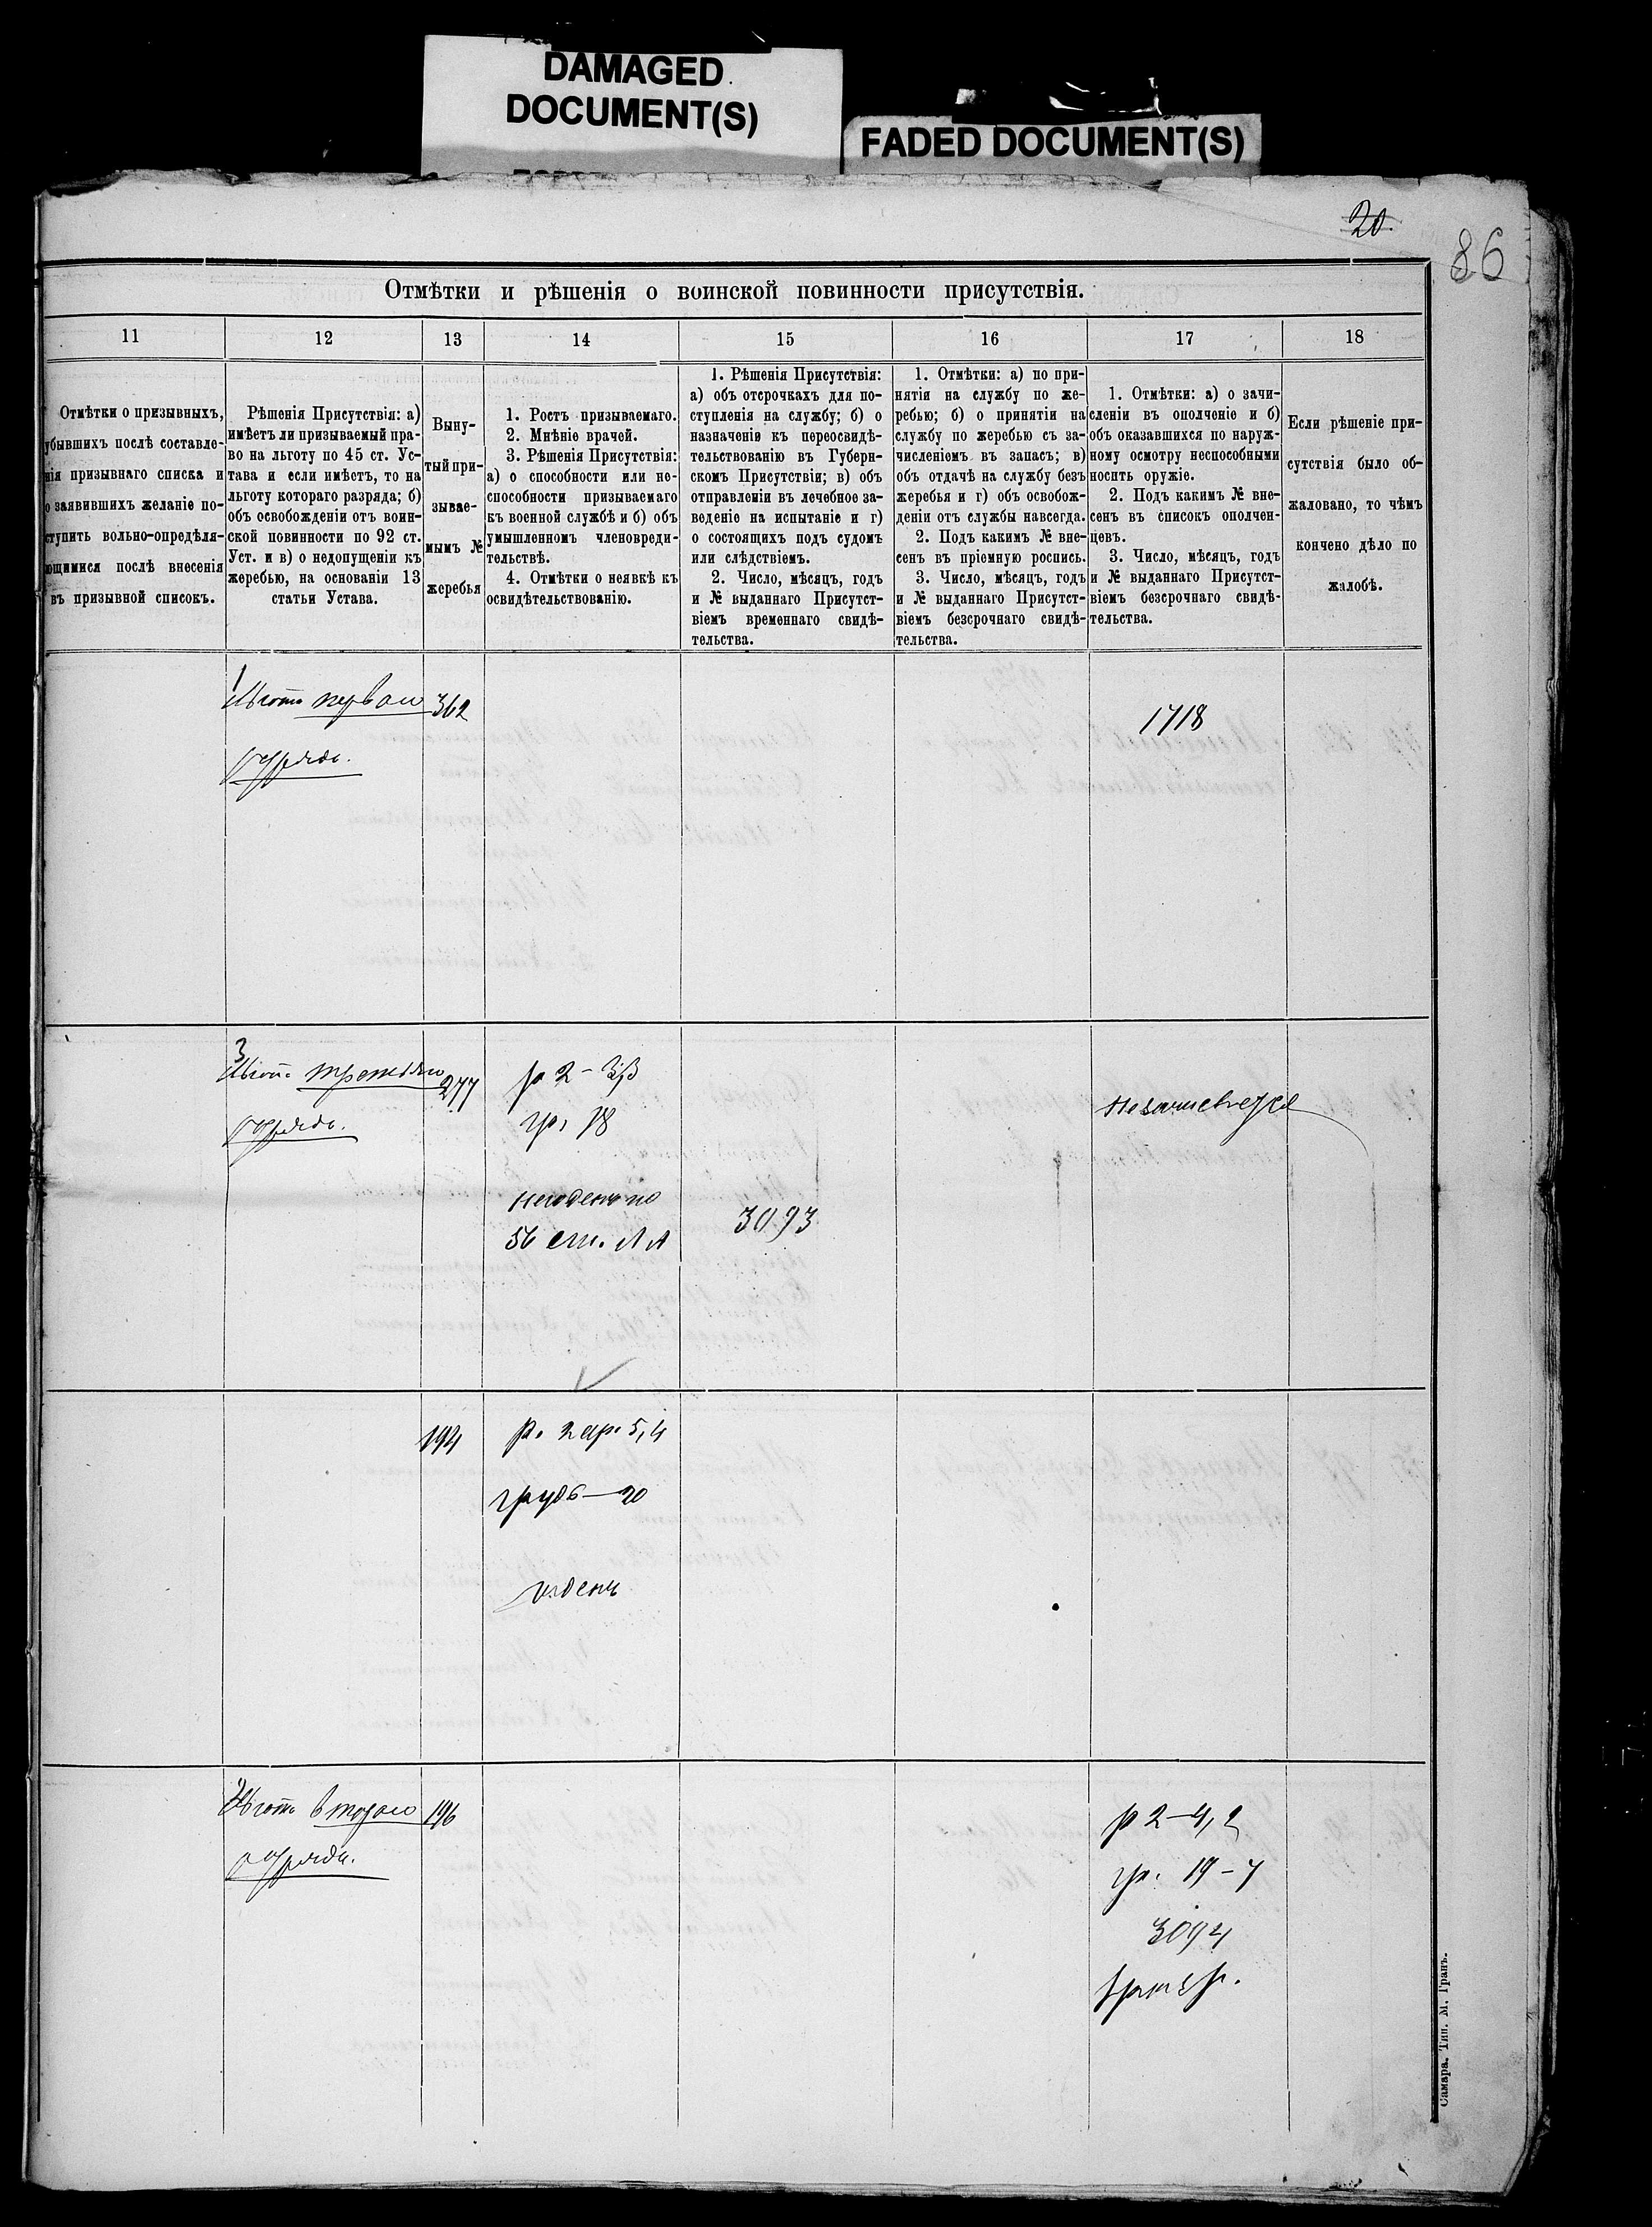 DAMAGED
DOCUMENT(S)
FADED DOCUMENT(S)
20.
86
Отмѣтки и рѣшенія о воинской повинности присутствія.
11 12 13 14 15 16 17 18
Отмѣтки о призывныхъ,
убывшихъ послѣ составле-
нія призывнаго списка и
о заявившихъ желаніе по-
ступить вольно-опредѣля-
ющимися послѣ внесенія
въ призывной списокъ.
Рѣшенія Присутствія: а)
имѣетъ ли призываемый пра-
во на льготу по 45 ст. Ус-
тава и если имѣетъ, то на
льготу котораго разряда; б)
объ освобожденіи отъ воин-
ской повинности по 92 ст.
Уст. и в) о недопущеніи къ
жеребью, на основаніи 13
статьи Устава.
Выну-
тый при-
зывае-
мымъ №
жеребья
1. Ростъ призываемаго.
2. Мнѣніе врачей.
3. Рѣшенія Присутствія:
а) о способности или не-
способности призываемаго
къ военной службѣ и б) объ
умышленномъ членовреди-
тельствѣ.
4. Отмѣтки о неявкѣ къ
освидѣтельствованію.
1. Рѣшенія Присутствія:
а) объ отсрочкахъ для по-
ступленія на службу; б) о
назначеніи къ переосвидѣ-
тельствованію въ Губерн-
скомъ Присутствіи; в) объ
отправленіи въ лечебное за-
веденіе на испытаніе и г)
о состоящихъ подъ судомъ
или слѣдствіемъ.
2. Число, мѣсяцъ, годъ
и № выданнаго Присутст-
віемъ временнаго свидѣ-
тельства.
1. Отмѣтки: а) по при-
нятіи на службу по же-
ребью; б) о принятіи на
службу по жеребью съ за-
численіемъ въ запасъ; в)
объ отдачѣ на службу безъ
жеребья и г) объ освобож-
деніи отъ службы навсегда.
2. Подъ какимъ № вне-
сенъ въ пріемную роспись.
3. Число, мѣсяцъ, годъ
и № выданнаго Присутст-
віемъ безсрочнаго свидѣ-
тельства.
1. Отмѣтки: а) о зачи-
сленіи въ ополченіе и б)
объ оказавшихся по наруж-
ному осмотру неспособными
носить оружіе.
2. Подъ какимъ № вне-
сенъ въ списокъ ополчен-
цевъ.
3. Число, мѣсяцъ, годъ
и № выданнаго Присутст-
віемъ безсрочнаго свидѣ-
тельства.
Если рѣшеніе при-
сутствія было об-
жаловано, то чѣмъ
кончено дѣло по
жалобѣ.
1
Льгота перваго
разряда.
362
1718
3
Льгота третьяго
разряда.
277
р 2 -
гр. 18
негоденъ по
56 ст. ЛА
3093
Незачисляется
194
р. 2 ар. 5,4
грудь—20
годенъ
2
Льгота втораго
разряда.
196
р 2—4,2
гр. 19-7
3094
Самара. Тип. М. Гранъ.